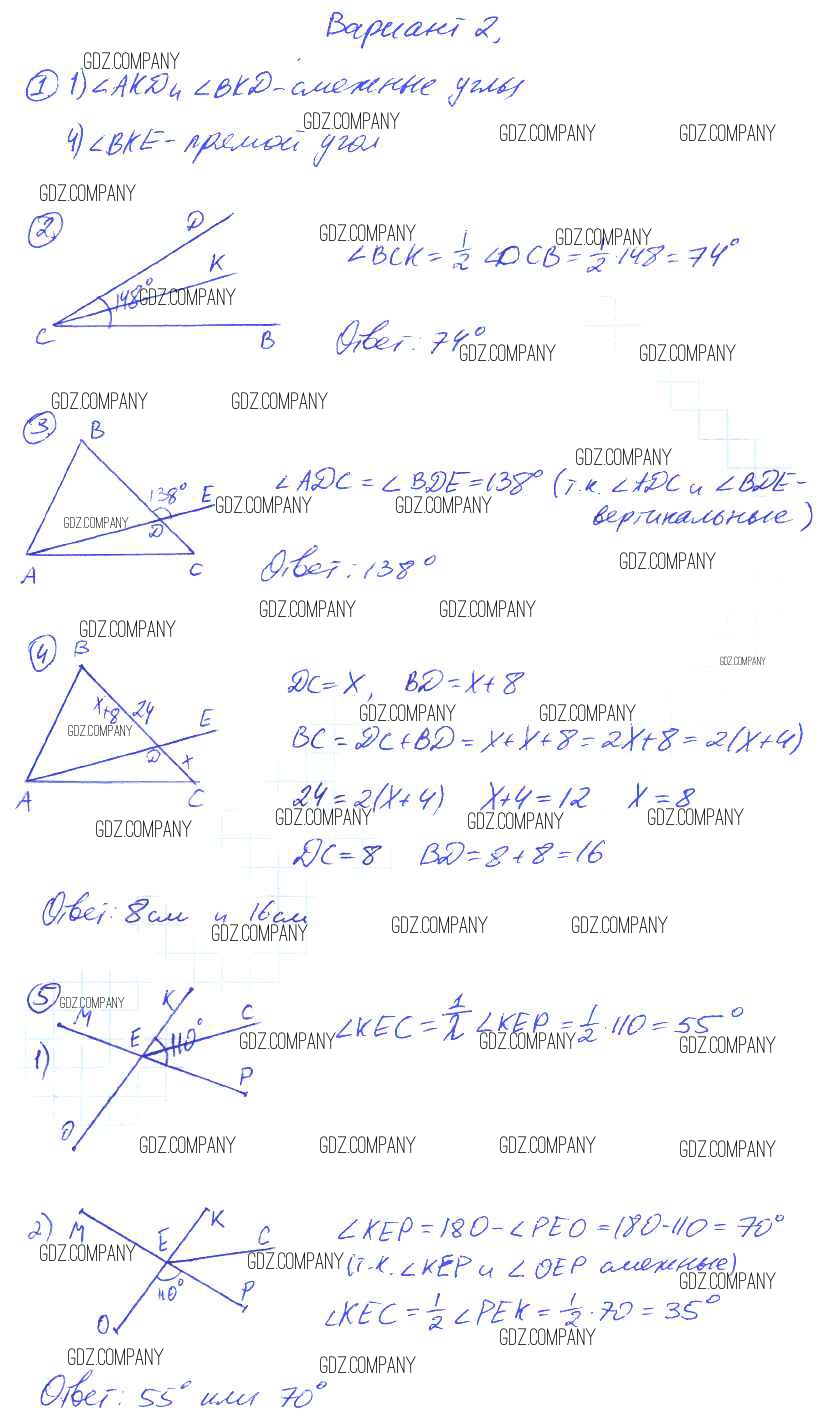 Вариант 2,
GDZ.COMPANY
① 1) ∠AKD и ∠BKD - смежные углы
GDZ.COMPANY GDZ.COMPANY GDZ.COMPANY
4) ∠BKE - прямой угол
GDZ.COMPANY
②
D
K
148°
C
B
GDZ.COMPANY GDZ.COMPANY
∠BCK = 1/2 ∠DCB = 1/2 · 148 = 74°
GDZ.COMPANY
Ответ: 74°
GDZ.COMPANY GDZ.COMPANY
GDZ.COMPANY GDZ.COMPANY
③
B
138°
E
D
A
C
GDZ.COMPANY
GDZ.COMPANY
∠ADC = ∠BDE = 138° (т.к. ∠ADC и ∠BDE -
GDZ.COMPANY GDZ.COMPANY
вертикальные)
GDZ.COMPANY
Ответ: 138°
GDZ.COMPANY GDZ.COMPANY
GDZ.COMPANY
④
B
GDZ.COMPANY
x+8 24
E
GDZ.COMPANY
D x
A
C
DC = x, BD = x+8
GDZ.COMPANY GDZ.COMPANY
BC = DC + BD = x + x + 8 = 2x + 8 = 2(x+4)
24 = 2(x+4) x+4 = 12 x = 8
GDZ.COMPANY GDZ.COMPANY GDZ.COMPANY GDZ.COMPANY
DC = 8 BD = 8 + 8 = 16
Ответ: 8 см и 16 см
GDZ.COMPANY GDZ.COMPANY GDZ.COMPANY
⑤
GDZ.COMPANY
K
M
C
E
110°
P
O
1)
∠KEC = 1/2 ∠KEP = 1/2 · 110 = 55°
GDZ.COMPANY GDZ.COMPANY GDZ.COMPANY
GDZ.COMPANY GDZ.COMPANY GDZ.COMPANY GDZ.COMPANY
2)
M
K
E
C
P
110°
O
∠KEP = 180 - ∠PEO = 180 - 110 = 70°
GDZ.COMPANY GDZ.COMPANY
(т.к. ∠KEP и ∠OEP смежные)
GDZ.COMPANY
∠KEC = 1/2 ∠PEK = 1/2 · 70 = 35°
GDZ.COMPANY
GDZ.COMPANY GDZ.COMPANY
Ответ: 55° или 70°